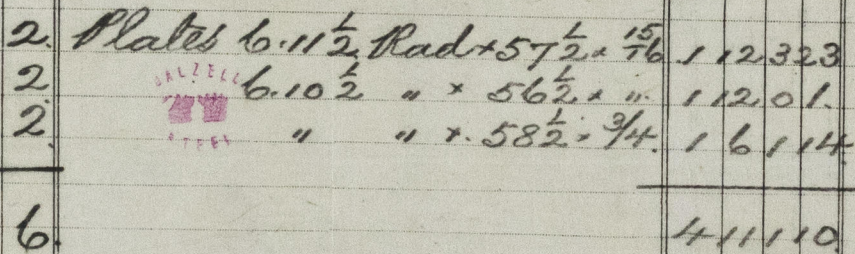 2. Plates 6.11½ Rad × 57½ × 15/16 1 12 3 23
DALZELL
2 6.10½ " × 56½ × " 1 12 0 1.
2. " " × 58½ × 3/4. 1 6 1 14
STEEL
6. 4 11 1 10